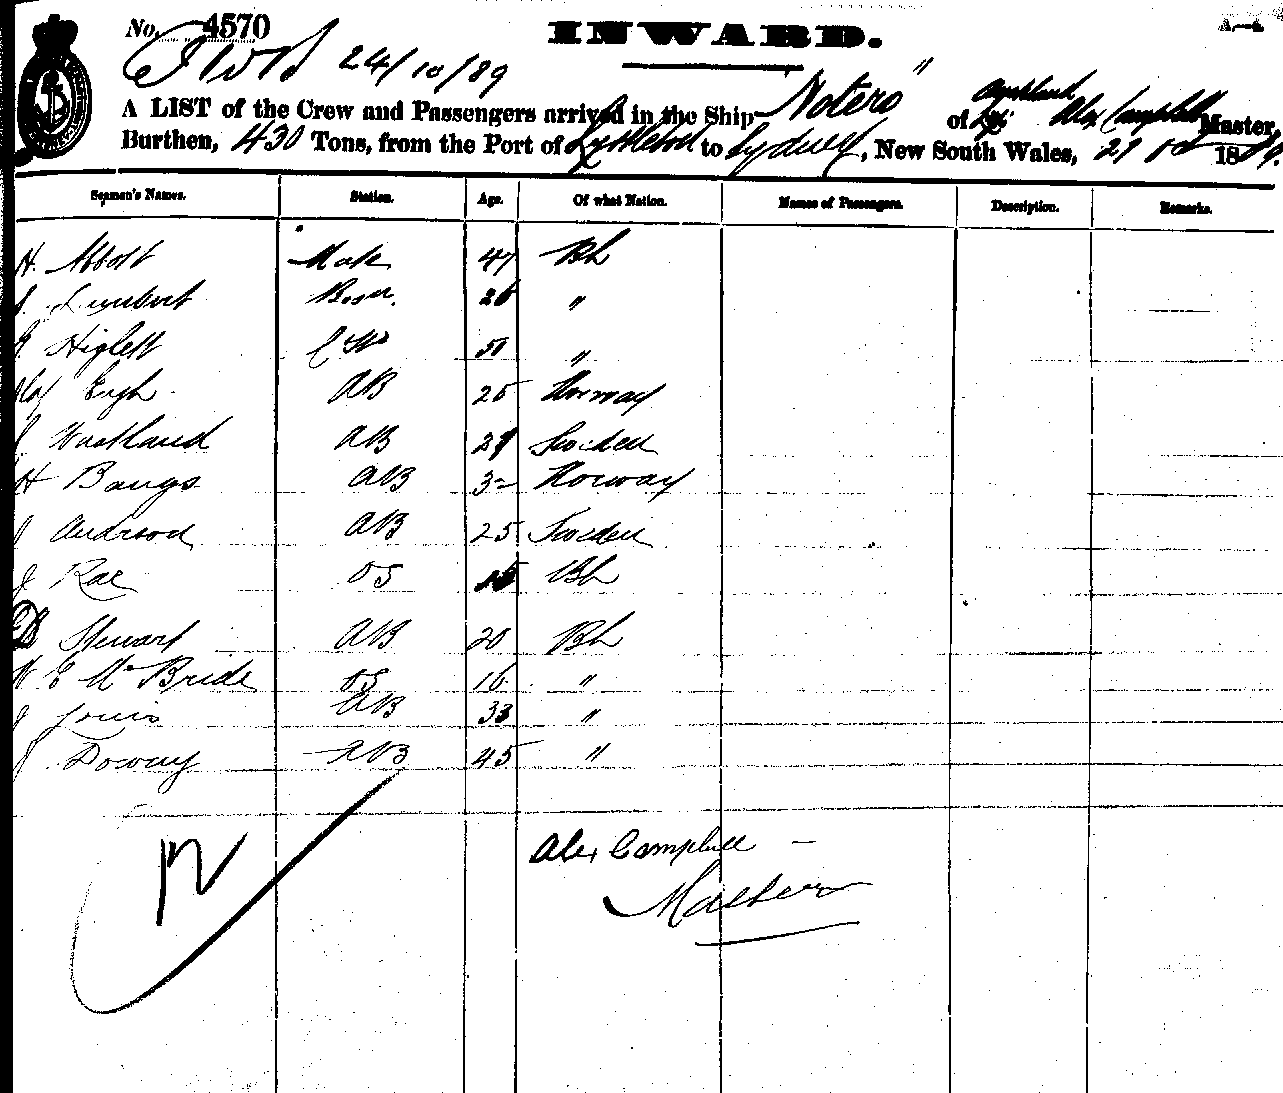 No. 4570
INWARD.
24/10/89
A LIST of the Crew and Passengers arrived in the Ship "Notero" of Auckland Alex Campbell Master,
Burthen, 430 Tons, from the Port of Lyttleton to Sydney, New South Wales, 1889.
Seamen's Names. Station. Age. Of what Nation. Names of Passengers. Description. Remarks.
H. Abbott Mate 47 Bh
Bosn. 26 "
Higlett "
AB 25 Norway
AB Sweden
H Bangs AB Norway
J AB 25 Sweden
J Rae OS 15 Bh
Stewart AB 20 Bh
W E McBride OS 16 "
J Louis AB 33 "
J AB 45 "
12
Alex Campbell
Master